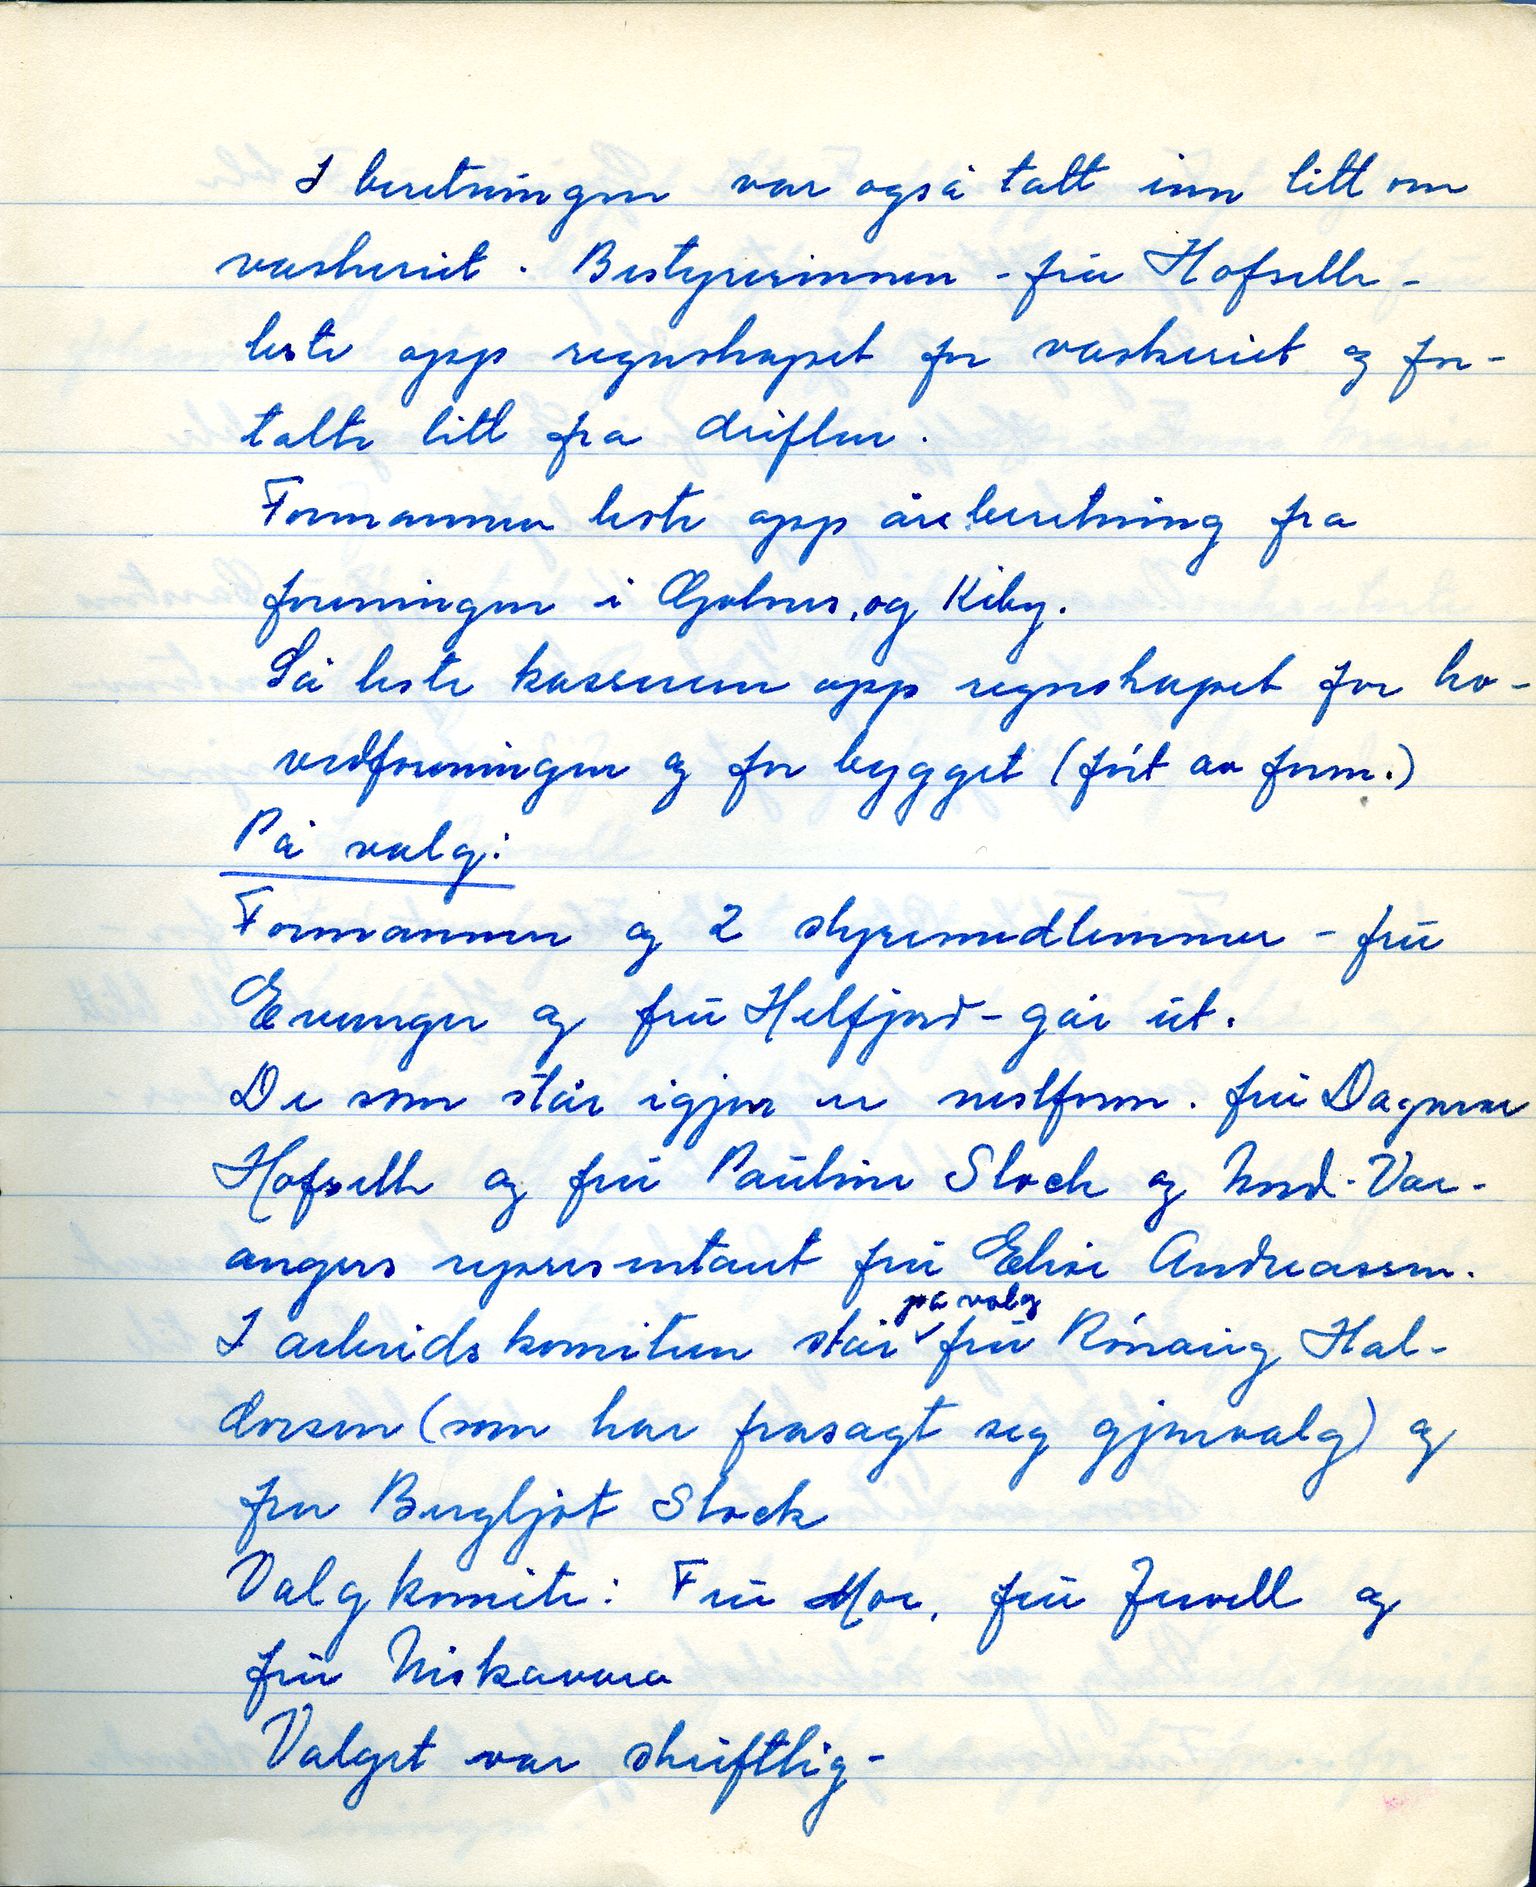 I beretningen var også tatt inn litt om
vaskeriet. Bestyrerinnen - frú Hofseth -
leste opp regnskapet for vaskeriet og for-
talte litt fra driften.
Formannen leste opp årsberetning fra
foreningen i Golnes, og Kiby.
Så leste kasseren opp regnskapet for ho-
vedforeningen og for bygget (ført av form.)
På valg:
Formannen og 2 styremedlemmer - frú
Evanger og frú Helfjord - går út.
De som står igjen er nestform. frú Dagmar
Hofseth og frú Paúline Stock og Nord-Var-
angers representant frú Elise Andreassen.
I arbeidskomiteen står på valg frú Rónaúg Hal-
dorsen (som har frasagt seg gjenvalg) og
fru Bergljot Stock
Valgkomite: Frú Moe, frú Jewell og
frú Niskavara
Valget var skriftlig -